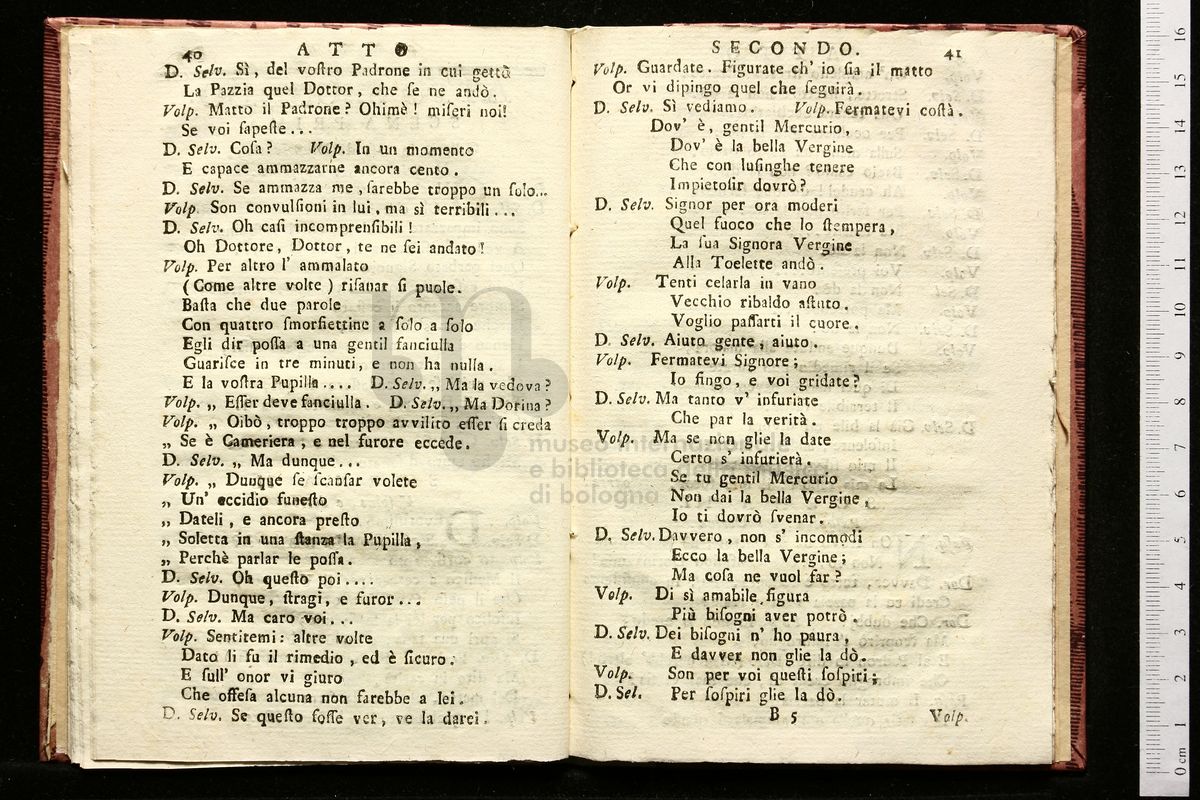 40 ATTO
D. Selv. Sì, del voſtro Padrone in cui gettò
La Pazzia quel Dottor, che ſe ne andò.
Volp. Matto il Padrone? Ohimè! miſeri noi!
Se voi ſapeſte...
D. Selv. Coſa? Volp. In un momento
E capace ammazzarne ancora cento.
D. Selv. Se ammazza me, ſarebbe troppo un ſolo...
Volp. Son convulſioni in lui, ma sì terribili...
D. Selv. Oh caſi incomprenſibili!
Oh Dottore, Dottor, te ne ſei andato!
Volp. Per altro l' ammalato
(Come altre volte) riſanar ſi puole.
Baſta che due parole
Con quattro ſmorfiettine a ſolo a ſolo
Egli dir poſſa a una gentil fanciulla
Guariſce in tre minuti, e non ha nulla.
E la voſtra Pupilla.... D. Selv. „ Ma la vedova?
Volp. „ Eſſer deve fanciulla. D. Selv. „ Ma Dorina?
Volp. „ Oibò, troppo troppo avvilito eſſer ſi creda
„ Se è Cameriera, e nel furore eccede.
D. Selv. „ Ma dunque...
Volp. „ Dunque ſe ſcanſar volete
„ Un' eccidio funeſto
„ Dateli, e ancora preſto
„ Soletta in una ſtanza la Pupilla,
„ Perchè parlar le poſſa.
D. Selv. Oh queſto poi....
Volp. Dunque, ſtragi, e furor...
D. Selv. Ma caro voi...
Volp. Sentitemi: altre volte
Dato li fu il rimedio, ed è ſicuro.
E full' onor vi giuro
Che offeſa alcuna non farebbe a lei.
D. Selv. Se queſto foſſe ver, ve la darei.
SECONDO. 41
Volp. Guardate. Figurate ch' io ſia il matto
Or vi dipingo quel che ſeguirà.
D. Selv. Sì vediamo. Volp. Fermatevi coſtà.
Dov' è, gentil Mercurio,
Dov' è la bella Vergine
Che con luſinghe tenere
Impietoſir dovrò?
D. Selv. Signor per ora moderi
Quel fuoco che lo ſtempera,
La ſua Signora Vergine
Alla Toelette andò.
Volp. Tenti celarla in vano
Vecchio ribaldo aſtuto.
Voglio paſſarti il cuore.
D. Selv. Aiuto gente, aiuto.
Volp. Fermatevi Signore;
Io fingo, e voi gridate?
D. Selv. Ma tanto v' infuriate
Che par la verità.
Volp. Ma se non glie la date
Certo s' infurierà.
Se tu gentil Mercurio
Non dai la bella Vergine,
Io ti dovrò ſvenar.
D. Selv. Davvero, non s' incomodi
Ecco la bella Vergine;
Ma coſa ne vuol far?
Volp. Di sì amabile figura
Più biſogni aver potrò.
D. Selv. Dei biſogni n' ho paura,
E davver non glie la dò.
Volp. Son per voi queſti ſoſpiri;
D. Sel. Per ſoſpiri glie la dò.
B 5 Volp.
museo
e biblioteca
di bologna
0 cm 1 2 3 4 5 6 7 8 9 10 11 12 13 14 15 16